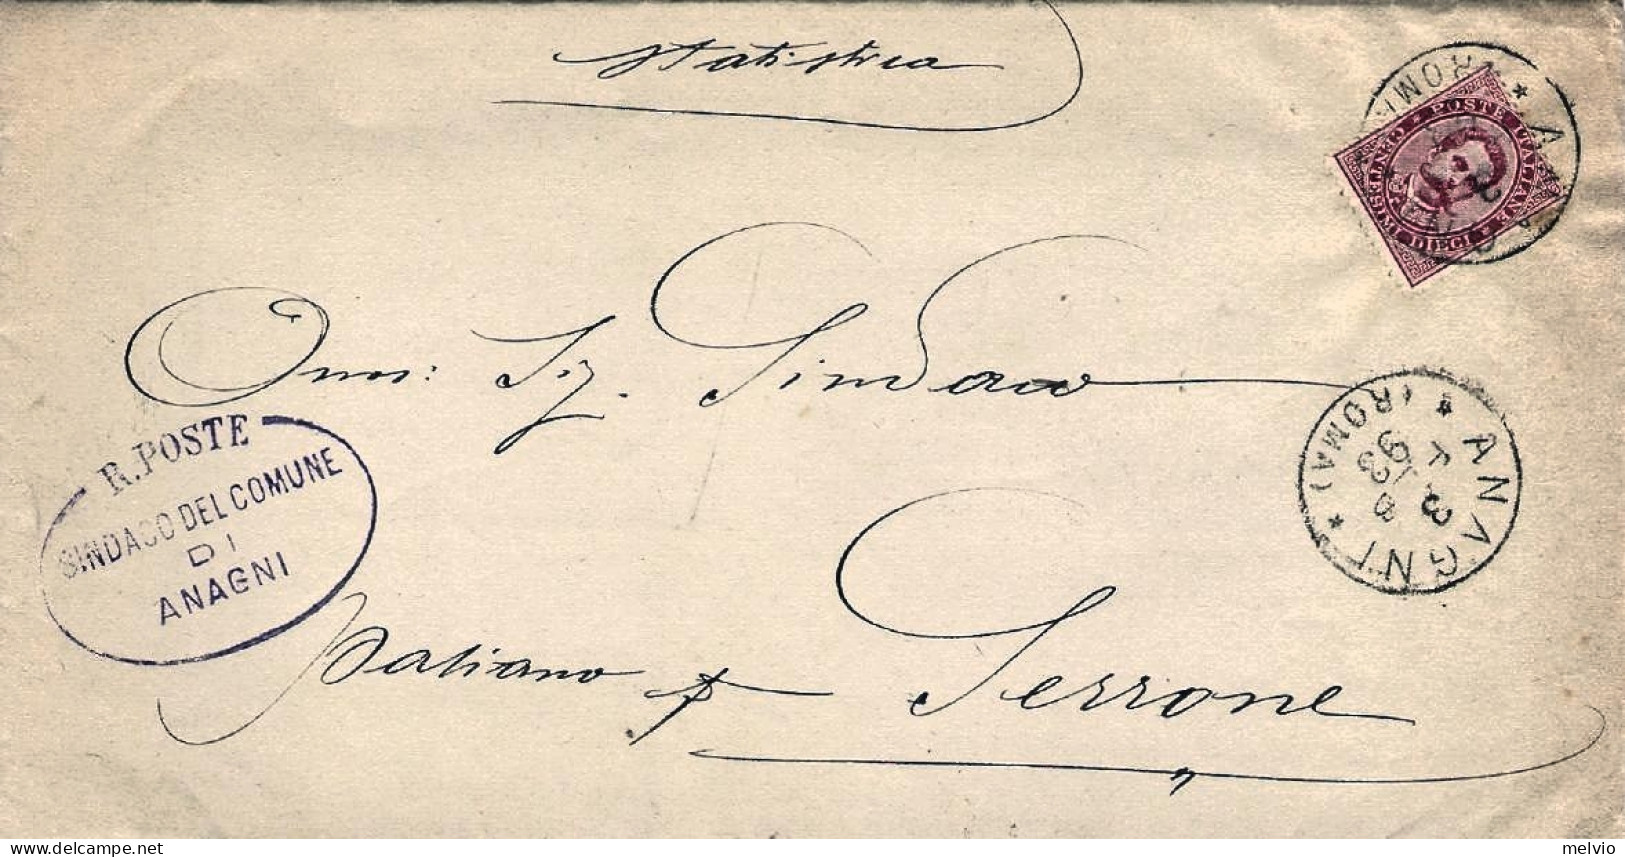 Statistica
POSTE ITALIANE
CENTESIMI DIECI
Onor: Sig. Sindaco
R. POSTE
SINDACO DEL COMUNE
DI
ANAGNI
ANAGNI
(ROMA)
3
93
Paliano p Serrone
delcampe.net
melvio